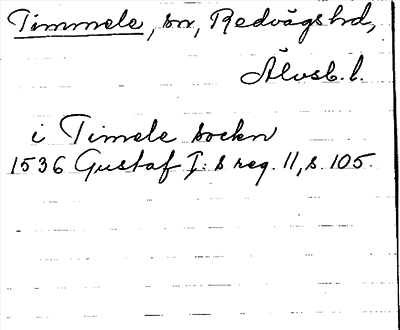 Timmele, sn, Redvägs hd,
Älvsb. l.
i Timele sockn
1536 Gustaf I:s reg. 11, s. 105.